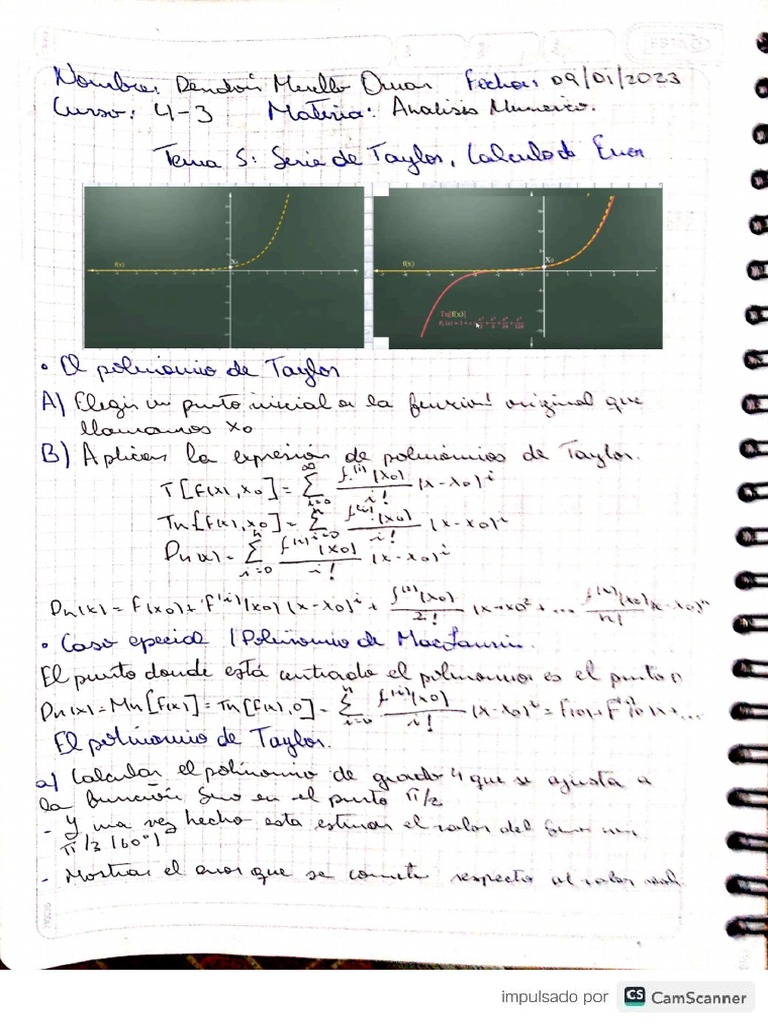 Nombre: Omar Fecha: 09/01/2023
Curso: 4-3 Materia: Analisis Numerico.
Tema 5: Serie de Taylor, Calculo de Error
f(x) X₀
f(x) X₀
Tn[f(x)]
• El polinomio de Taylor
A) Elegir un punto inicial a la función original que
llamamos X₀
B) Aplicar la expresión de polinomios de Taylor.
T[f(x), x₀] = ∑_{i=0}^{∞} f^{(i)}(x₀)/i! (x-x₀)^i
Tn[f(x), x₀] = ∑_{i=0}^{n} f^{(i)}(x₀)/i! (x-x₀)^i
Pn(x) = ∑_{i=0}^{n} f^{(i)}(x₀)/i! (x-x₀)^i
Pn(x) = f(x₀) + f'^{(i)}(x₀)(x-x₀)^i + f^{(2)}(x₀)/2! (x-x₀)² + ... f^{(n)}(x₀)/n! (x-x₀)^n
• Caso especial (Polinomio de MacLaurin.
El punto donde está centrado el polinomio es el punto 0
Pn(x) = Mn[f(x)] = Tn[f(x), 0] = ∑_{i=0}^{n} f^{(i)}(x₀)/i! (x-x₀)^i = f(0) +
El polinomio de Taylor.
a) Calcular el polinomio de grado 4 que se ajusta a
la función Seno en el punto π/2
- Y una vez hecho esta estimar el valor del Seno
π/3 (60°)
- Mostrar el error que se comete respecto al valor real.
impulsado por CS CamScanner